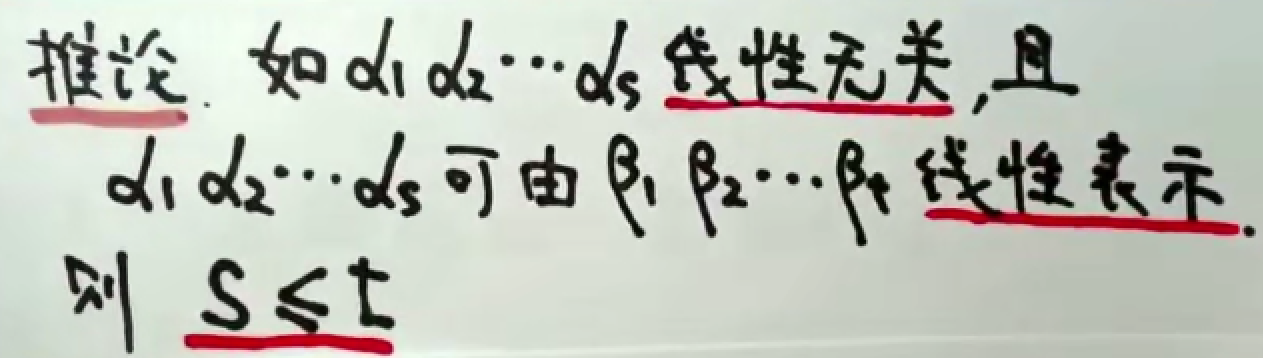 推论. 如 α₁ α₂ ⋯ αₛ 线性无关,且
α₁ α₂ ⋯ αₛ 可由 β₁ β₂ ⋯ βₜ 线性表示.
则 S ≤ t